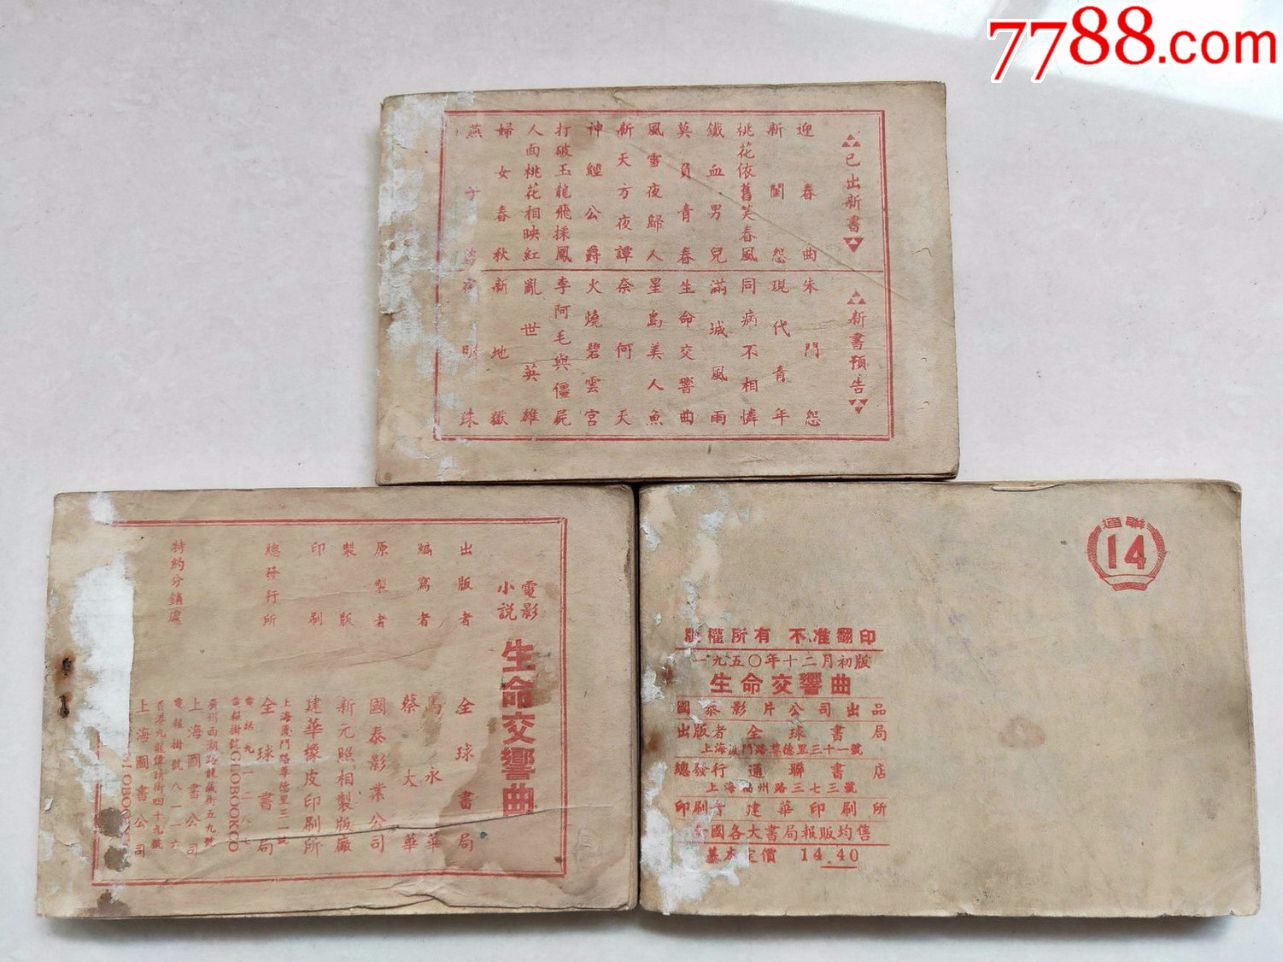 7788.com
已出新書
迎春曲
新閨怨
桃花依舊笑春風
鐵血男兒
莫負青春
風雪夜歸人
新天方夜譚
神鱷公爵
打破玉龍飛採鳳
人面桃花相映紅
婦女春秋
燕子
新書預告
朱門怨
現代青年
同病不相憐
滿城風雨
生命交響曲
星島美人魚
奈何天
火燒碧雲宮
李阿毛與僵屍
亂世英雄
新地獄
夜明珠
電影
小説
生命交響曲
出版者 全球書局
編寫者 馬永華
蔡大華
原製者 國泰影業公司
製版 新元照相製版廠
印刷 建華橡皮印刷所
總發行所 全球書局
上海廈門路尊德里三一號
特約分銷處
上海圖書公司
上海圖書公司
通聯
14
版權所有 不准翻印
一九五〇年十二月初版
生命交響曲
國泰影片公司出品
出版者 全球書局
上海廈門路尊德里三十一號
總發行 通聯書店
上海福州路三七三號
印刷者 建華印刷所
全國各大書局報販均售
基本定價 14.40